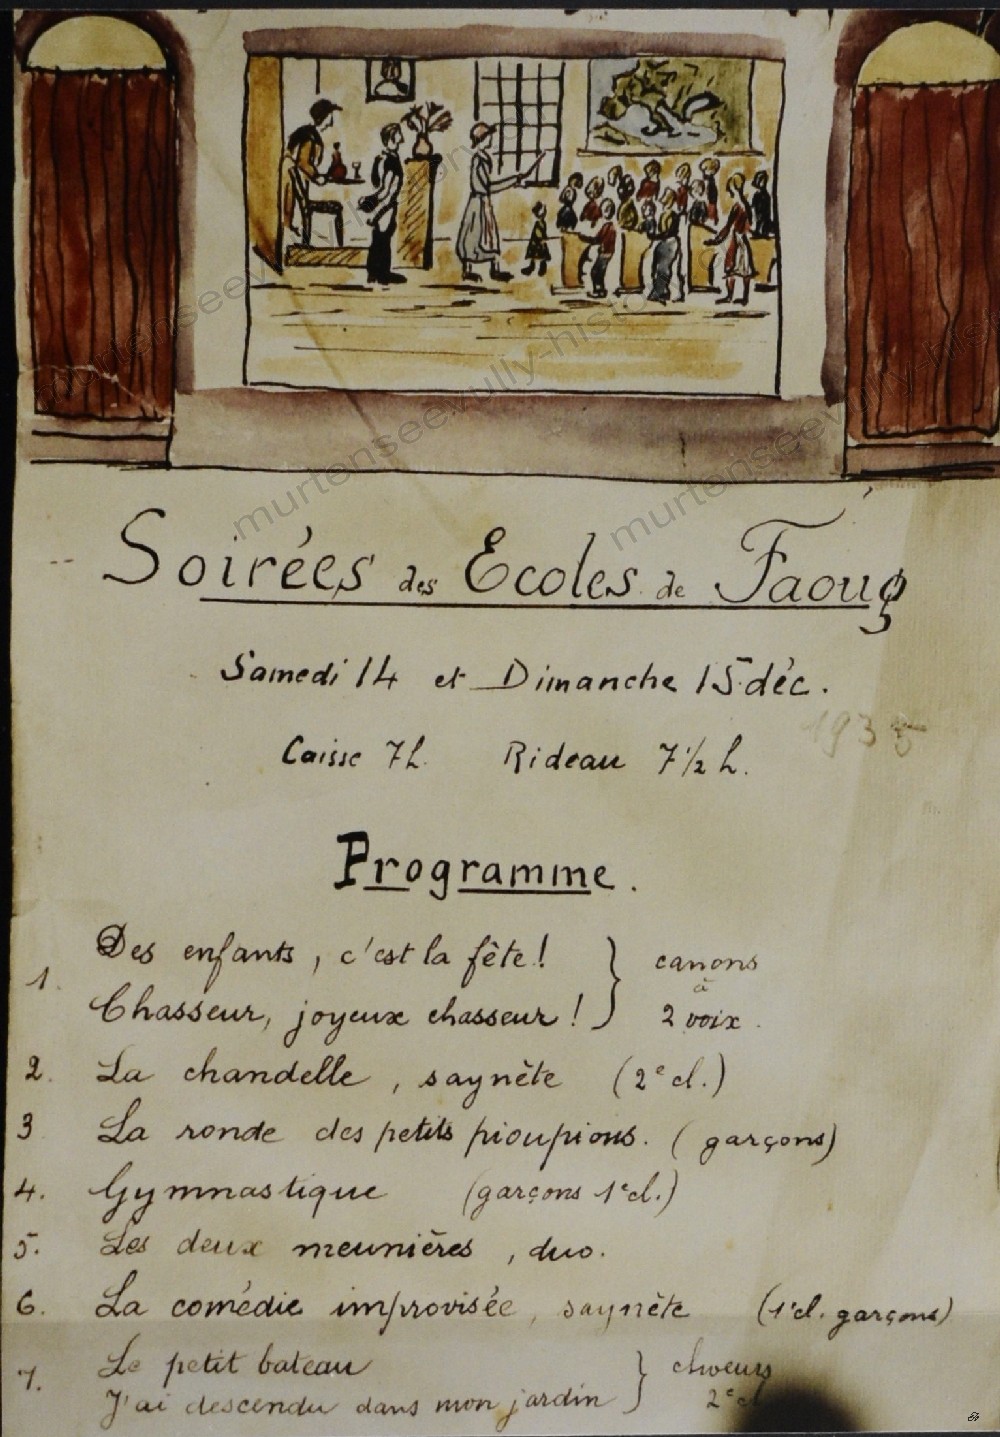 Soirées des Ecoles de Faoug
Samedi 14 et Dimanche 15 déc.
193
Caisse 7h. Rideau 7 1/2 h.
Programme.
1. Des enfants, c'est la fête! } canons
Chasseur, joyeux chasseur! } à 2 voix.
2. La chandelle, saynète (2e cl.)
3 La ronde des petits pioupious. (garçons)
4. Gymnastique (garçons 1e cl.)
5. Les deux meunières, duo.
6. La comédie improvisée, saynète (1e cl. garçons)
7. Le petit bateau } choeurs
J'ai descendu dans mon jardin } 2e cl